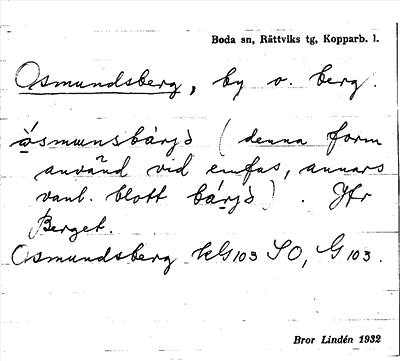 Boda sn, Rättviks tg, Kopparb. l.
Osmundsberg, by o. berg.
(denna form
använd vid emfas, annars
vanl. blott bárjə). Jfr
Berget.
Osmundsberg kG103 SO, G103.
Bror Lindén 1932